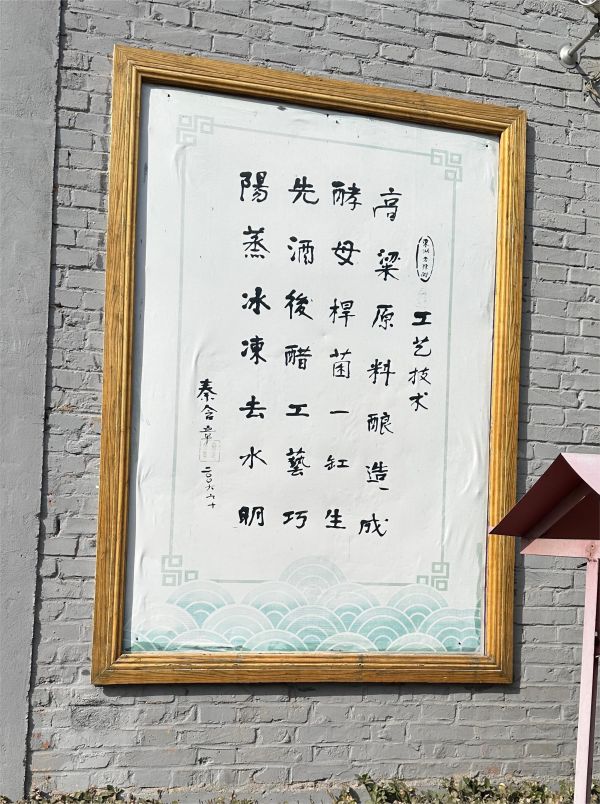 工艺技术
高粱原料酿造成
酵母桿菌一缸生
先酒後醋工藝巧
陽蒸冰凍去水明
秦含章